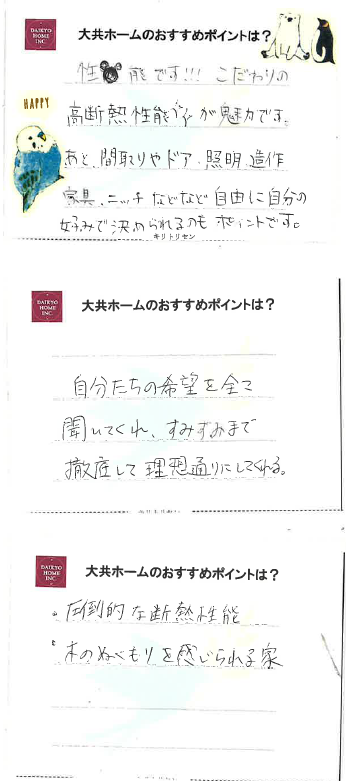 DAIKYO
HOME
INC.
大共ホームのおすすめポイントは？
性能です!!! こだわりの
HAPPY
高断熱性能が魅力です。
あと、間取りやドア、照明、造作
家具、ニッチなどなど自由に自分の
好みで決められるのもポイントです。
キリトリセン
DAIKYO
HOME
INC.
大共ホームのおすすめポイントは？
自分たちの希望を全て
聞いてくれ、すみずみまで
徹底して理想通りにしてくれる。
DAIKYO
HOME
INC.
大共ホームのおすすめポイントは？
・圧倒的な断熱性能
・木のぬくもりを感じられる家